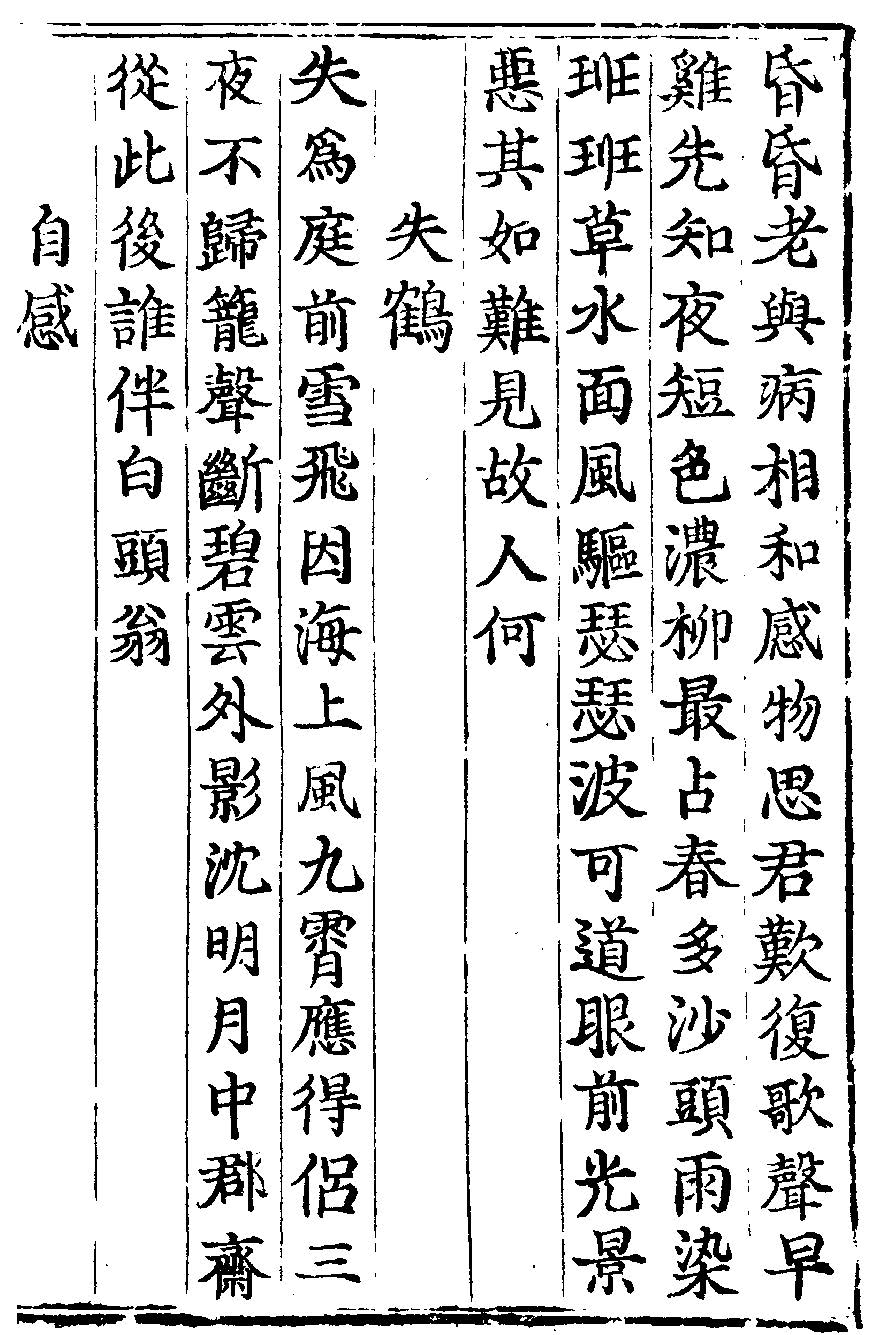 昏昏老與病相和感物思君歎復歌聲早
雞先知夜短色濃柳最占春多沙頭雨染
班班草水面風驅瑟瑟波可道眼前光景
惡其如難見故人何
失鶴
失爲庭前雪飛因海上風九霄應得侶三
夜不歸籠聲斷碧雲外影沈明月中郡齋
從此後誰伴白頭翁
自感